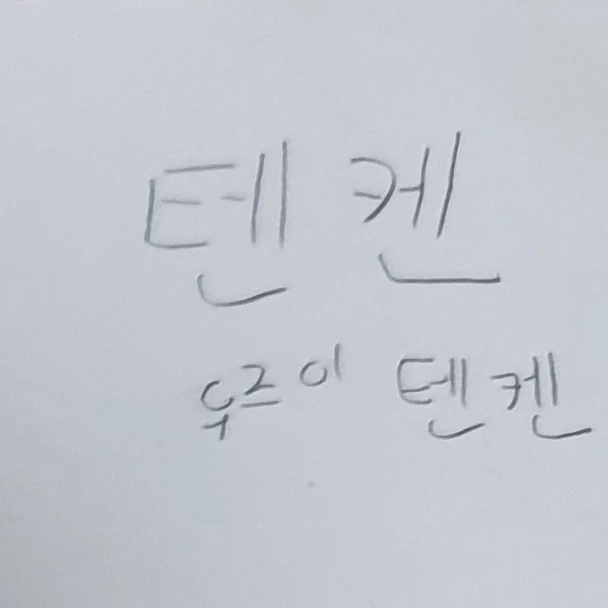 텐 켄
우즈이 텐켄